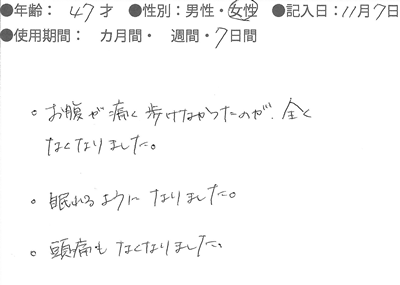 ●年齢： 47才 ●性別：男性・女性 ●記入日：11月7日
●使用期間： カ月間・ 週間・7日間
。お腹が痛く歩けなかったのが、全く
なくなりました。
。眠れるようになりました。
。頭痛もなくなりました。